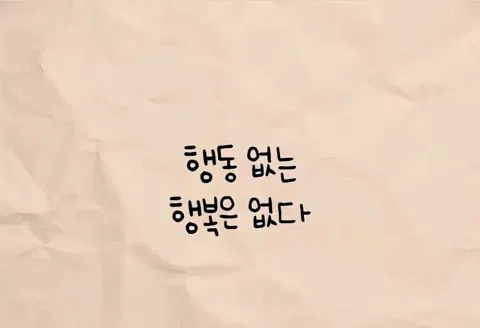 행동 없는
행복은 없다